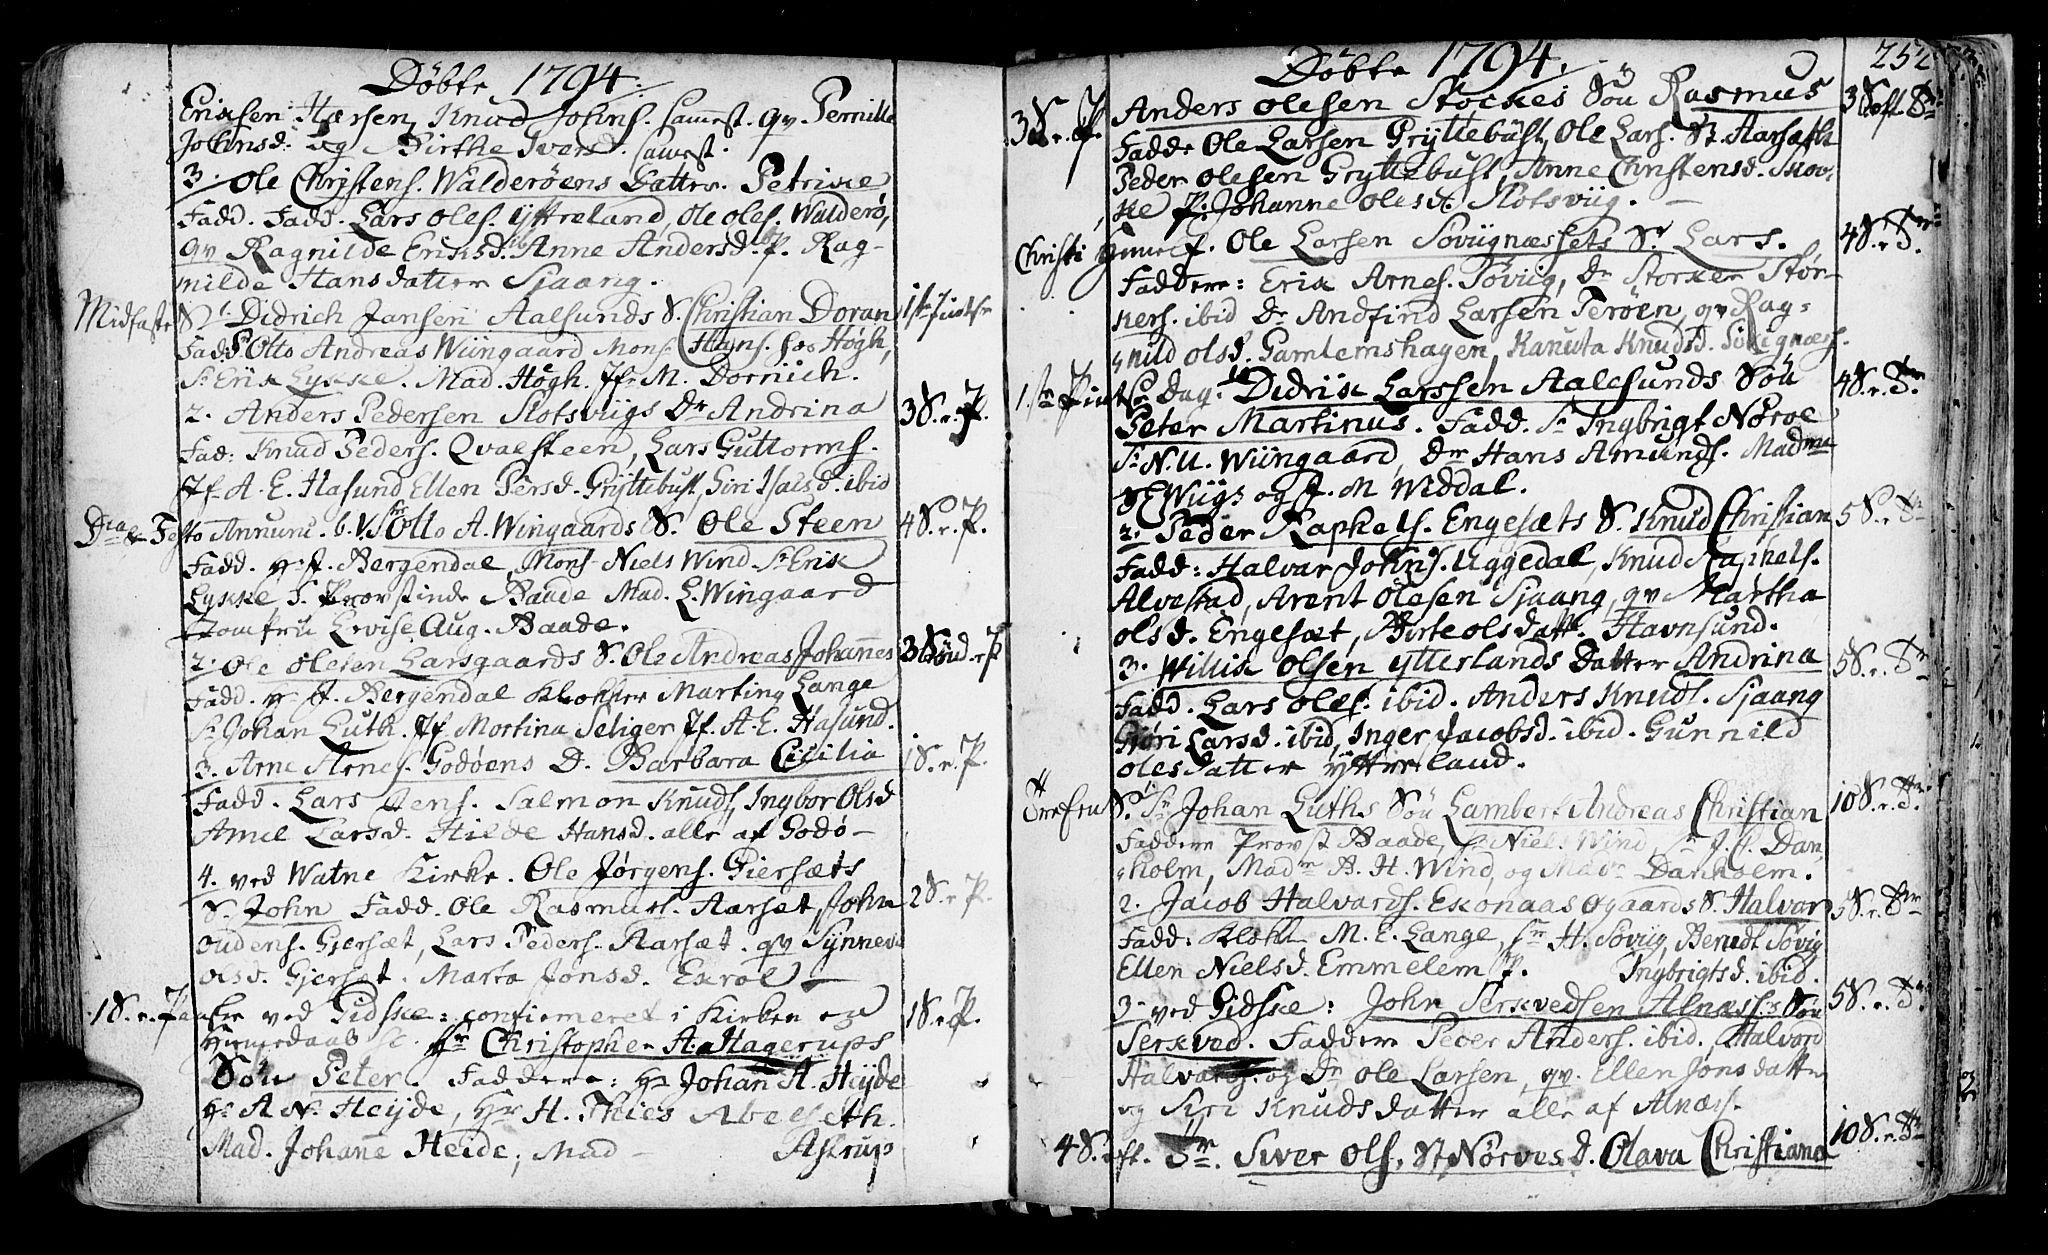 Döbte 1794.
Eriksen Hæssen, Knud Johns. samest. qv. Pernille
Johnsd. og Birthe Iversd. samest.
3. Ole Christens. Walderöens Datter. Petrike
Fadd. Fadd. Lars Oles. Yttreland, Ole Oles. Walderö,
qv Ragnilde Eriksd. ib Anne Andersd. ib P. Rag-
nilde Hansdatter Sjaang.
Midfaste S. Didrich Jansen Aalsunds S. Christian Doran
Fadd. S. Otto Andreas Wiingaard Mons. Hans Högh,
Sr Erik Lykke. Mad. Högh. Jfr M. Dornich.
2. Anders Pedersen Slotsviigs Dr Andrina 3 S. e. P.
Fad: Knud Peders. Qvalsteen, Lars Guttorms.
Jf. A. E. Hasund Ellen Persd. Gryttebust, Siri Isaksd. ibid
Festo Annunc. b. V. Sr Otto A. Wingaards S. Ole Steen 4 S. e. P.
Fadd. Hr J. Bergendal, Mons. Niels Wind Sr Erik
Lykke, Provstinde Baade Mad. E. Wingaard
Jomfrü Lovise Aug. Baade.
2. Ole Olesen Larsgaards S. Ole Andreas Johannes
Fadd. Hr J. Bergendal Klokker Marting Lange
Sr Johan Luth. Jf Martina Seliger Jf. A. E. Hasund.
3. Arne Arnes. Godöens D. Barbara Cicilia 1 S. e. P.
Fadd. Lars Jens. Salmon Knuds, Ingbor Olsd
Larsd. Hilde Hansd. alle af Godö-
4. ved Watne Kirke. Ole Jörgens. Giersæts
S. John Fadd. Ole Rasmus. Aarset, John 2 S. e. P.
Oudens. Gjersæt, Lars Peders. Aarsæt. qv Synneve
Olsd. Gjersæt. Marta Jonsd. Exroel
1 S. e. Paaske ved Gidske: confirmeret i Kirken en 1 S. e. P.
Hiemedaab Hr Christopher A. Hagerups
Sön Peter. Faddere: Hr Johan A. Heyde
Hr A N. Heyde, Hr H. Thies Abelseth.
Mad. Johane Heide, Mad - Astrup
Döbte 1794. 252
3 S. e. P. Anders Olesen Stockes Sön Rasmus
Fadd. Ole Larsen Gryttebüst, Ole Lars. St. Aarsæth
Peder Olesen Gryttebust, Anne Christensd. Skov-
ke P. Johanne Olesd. Slotsviig.
Christi Himelf. Ole Larsen Söviignæssets Sr Lars.
Faddere: Erik Arnes. Söviig, Dr Storker Stör-
kers. ibid Dr Andfind Larsen Teröen, qv Rag-
nild Olsd. Gamlemshagen, Kanuta Knudsd. Sövignæss.
1. Pintse Dag. Didrik Larssen Aalesunds Sön
Peter Martinus. Fadd. Sr Ingbrigt Nörve
Sr N. U. Wiingaard, Dr Hans Amunds. Madme
Wiigs og J. M Weddal.
2. Peder Raphels. Engesæts S. Knud Christian
Fadd: Halvar Johns. Uggedal, Knud Raphels.
Alvestad, Arent Olesen Sjaang, qv Martha
Olsd. Engesæt, Birte Olsdatt. Havnsund.
3. Willik Olsen Ytterlands Datter Andrina
Fadd. Lars Oles. ibid. Anders Knuds. Sjaang
Gjöri Larsd. ibid, Inger Jacobsd. ibid. Gunnild
Olesdatter Ytterland.
S. Sr Johan Luths Sön Lambert Andreas Christian
Faddere Provst Baade, Sr Niels Wind, Sr J. P. Dan-
holm, Madm B. H. Wind, og Madm Danholm.
2. Jacob Halvards. Exonaas Ögaards S. Halvar
Fadd: Klokk M. E. Lange, Sr H. Söviig, Berndt Sövig
Ellen Nielsd. Emmelem P. Ingbrigtsd. ibid.
3- ved Gidske: John Serkvedsen Alnæss Sön
Serkved. Faddere Peder Anders. ibid. Halvard
Halvards. og Dr Ole Larsen, qv. Ellen Jonsdatter
og Siri Knudsdatter alle af Alnæss.
4 S. eft. Tr. Siver Ols. St Nörves D. Olava Christiana
4 S. e. Tr.
4 S. e. Tr.
5 S. e. Tr
5 S. e. Tr
10 S. e. Tr.
5 S. e. Tr
5 S. e. Tr
10 S. e. Tr